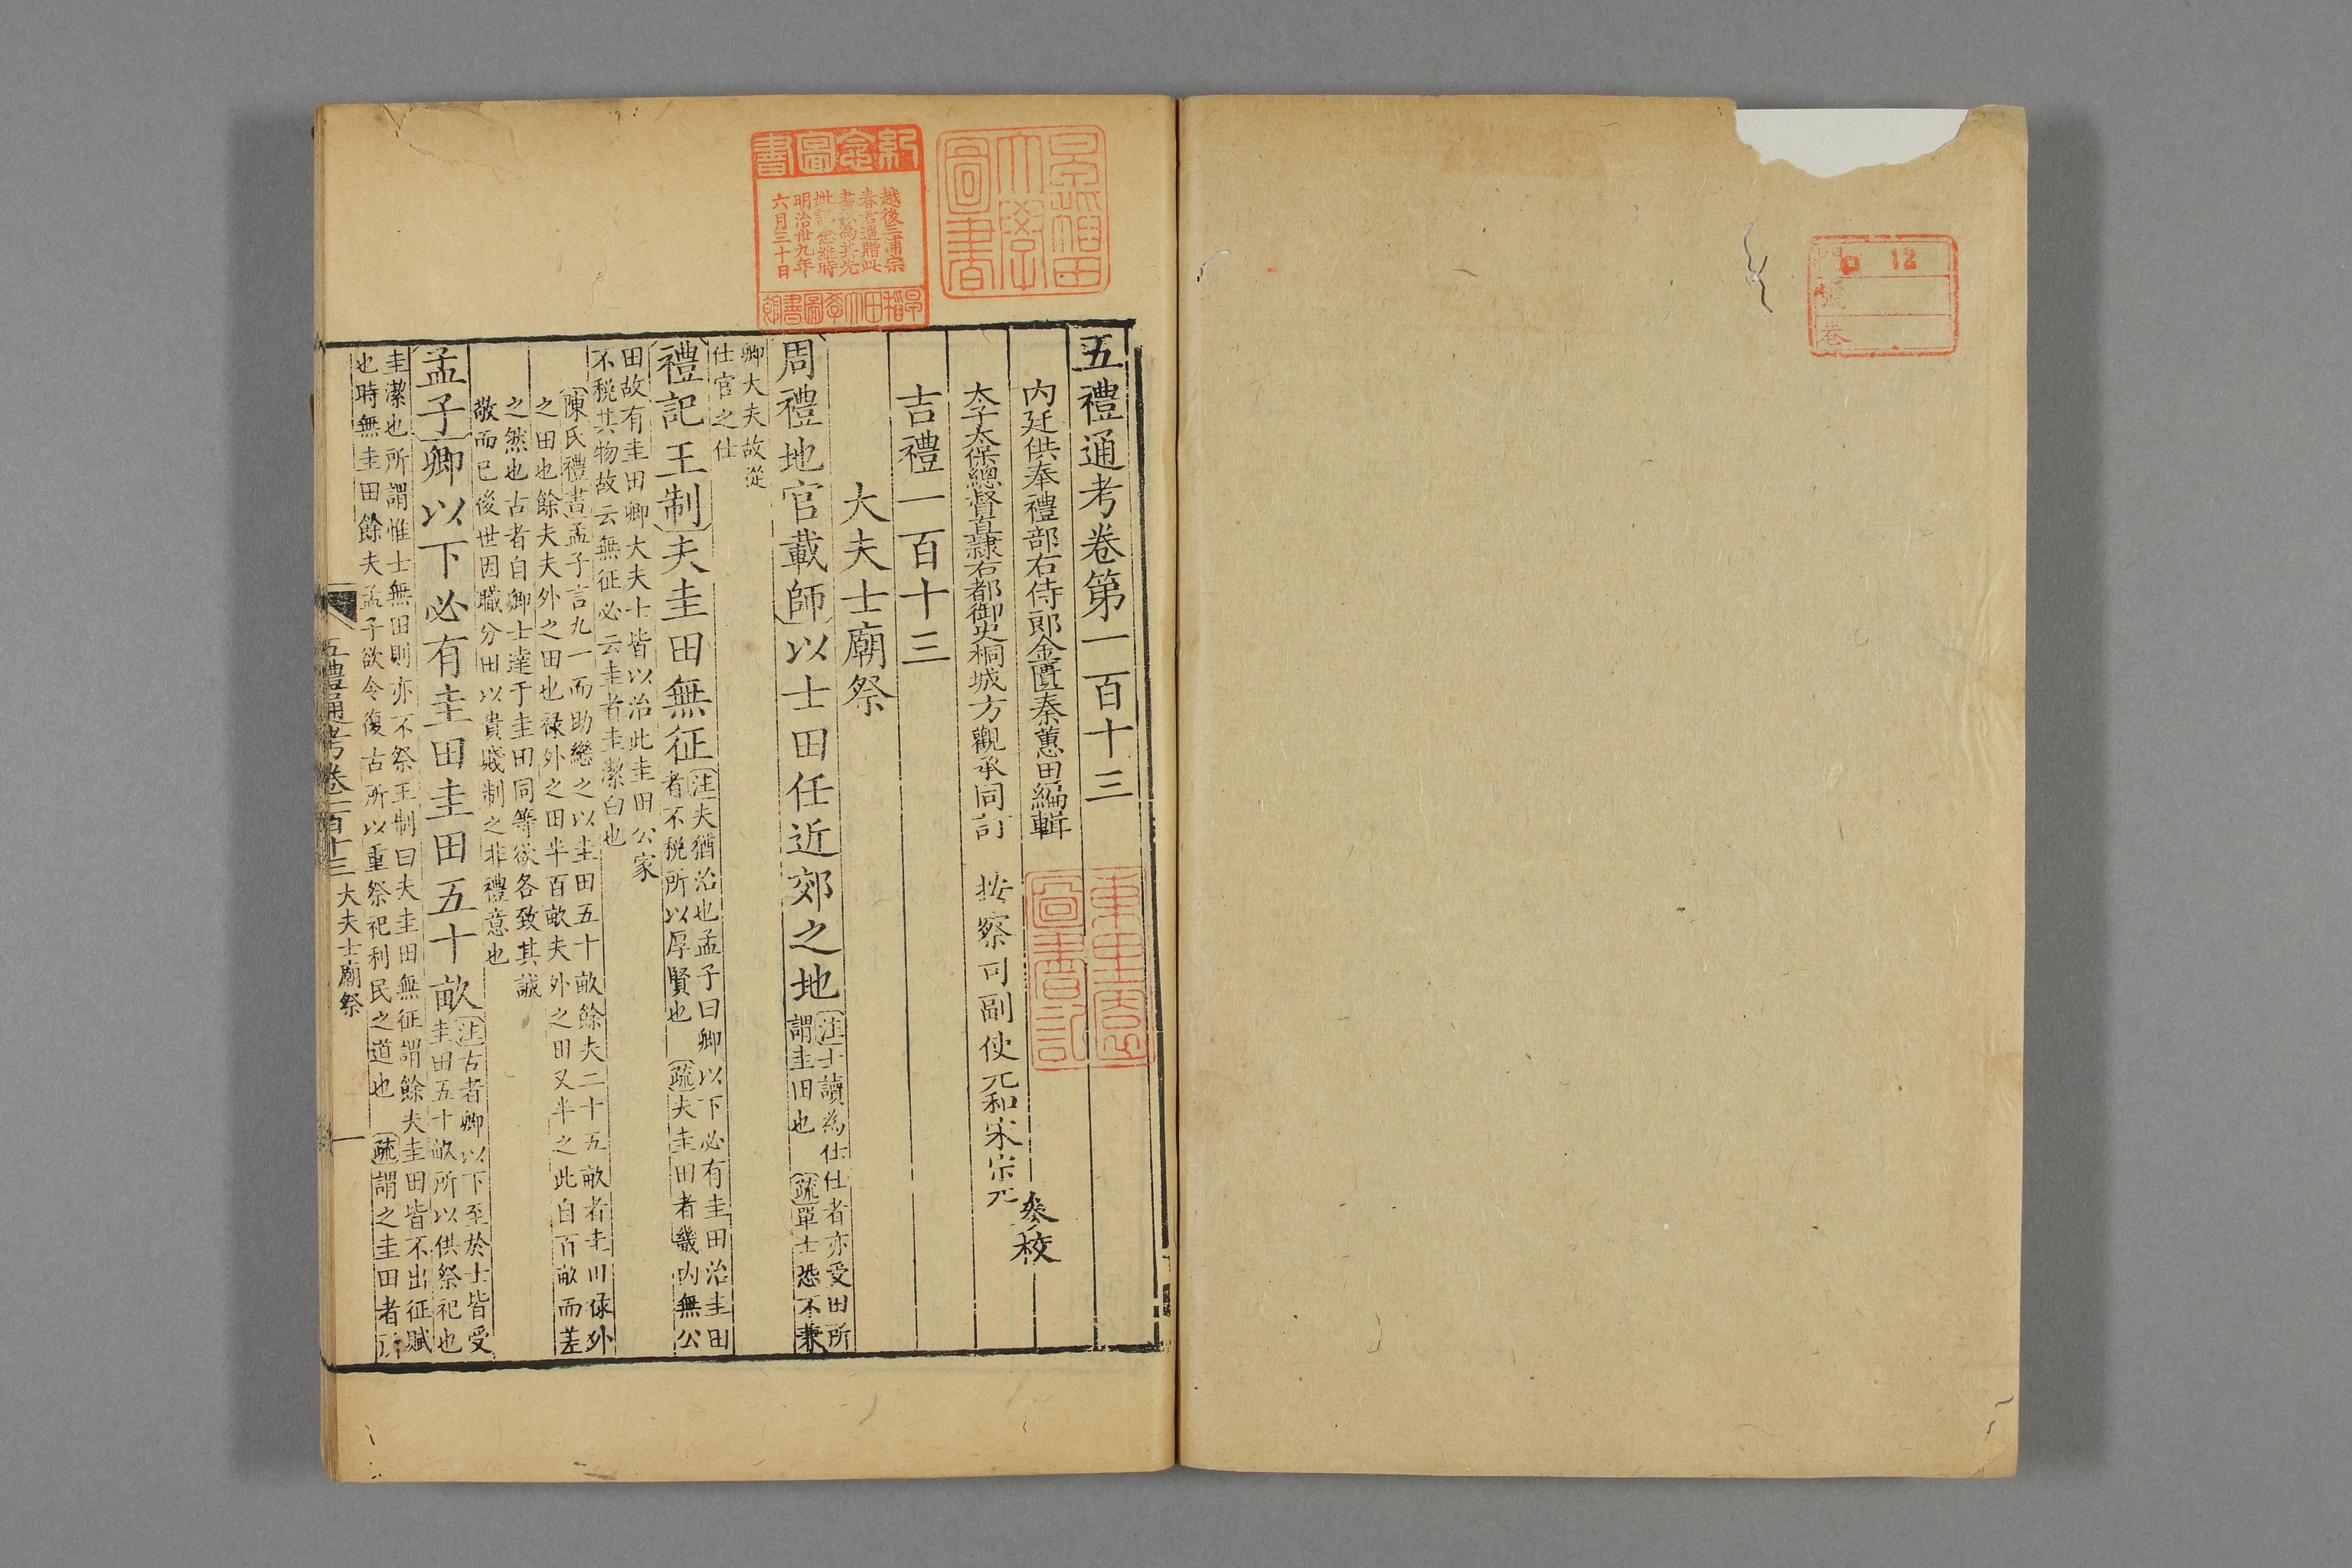 門 ロ 12
號
巻
早稲田大學圖書
紀念圖書
越後三浦宗
春君遺贈此
明治卅九年
六月三十日
早稲田大學圖書館
五禮通考卷第一百十三
内廷供奉禮部右侍郎金匱秦蕙田編輯
太子太保總督直隸右都御史桐城方觀承同訂
按察司副使元和宋宗元
參校
吉禮一百十三
大夫士廟祭
周禮地官載師以士田任近郊之地
注士讀為仕仕者亦受田所
謂圭田也 疏單士恐不兼
卿大夫故從
仕官之仕
禮記王制夫圭田無征
注夫猶治也孟子曰卿以下必有圭田治圭田
者不稅所以厚賢也 疏夫圭田者畿内無公
田故有圭田卿大夫士皆以治此圭田公家
不稅其物故云無征必云圭者圭潔白也
陳氏禮書孟子言九一而助繼之以圭田五十畝餘夫二十五畝者圭田祿外
之田也餘夫夫外之田也祿外之田半百畝夫外之田又半之此自百畝而差
之然也古者自卿士達于圭田同等欲各致其誠
敬而已後世因職分田以貴賤制之非禮意也
孟子卿以下必有圭田圭田五十畝
注古者卿以下至於士皆受
圭田五十畝所以供祭祀也
圭潔也所謂惟士無田則亦不祭王制曰夫圭田無征謂餘夫圭田皆不出征賦
也時無圭田餘夫孟子欲令復古所以重祭祀利民之道也 疏謂之圭田者所
五禮通考卷一百十三 大夫士廟祭 一
圖書記